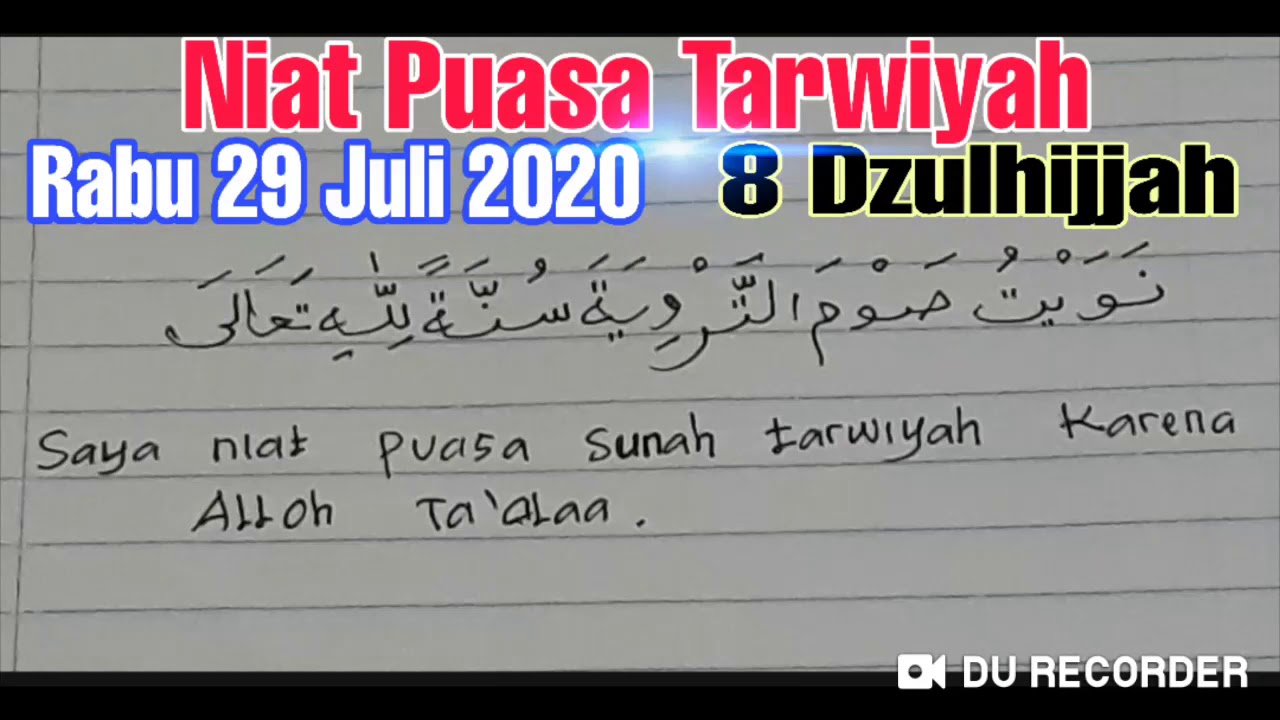 Niat Puasa Tarwiyah
Rabu 29 Juli 2020 8 Dzulhijjah
نَوَيْتُ صَوْمَ التَّرْوِيَةَ سُنَّةً لِلّٰهِ تَعَالَى
Saya niat puasa sunah tarwiyah karena
Alloh Ta'alaa.
DU RECORDER